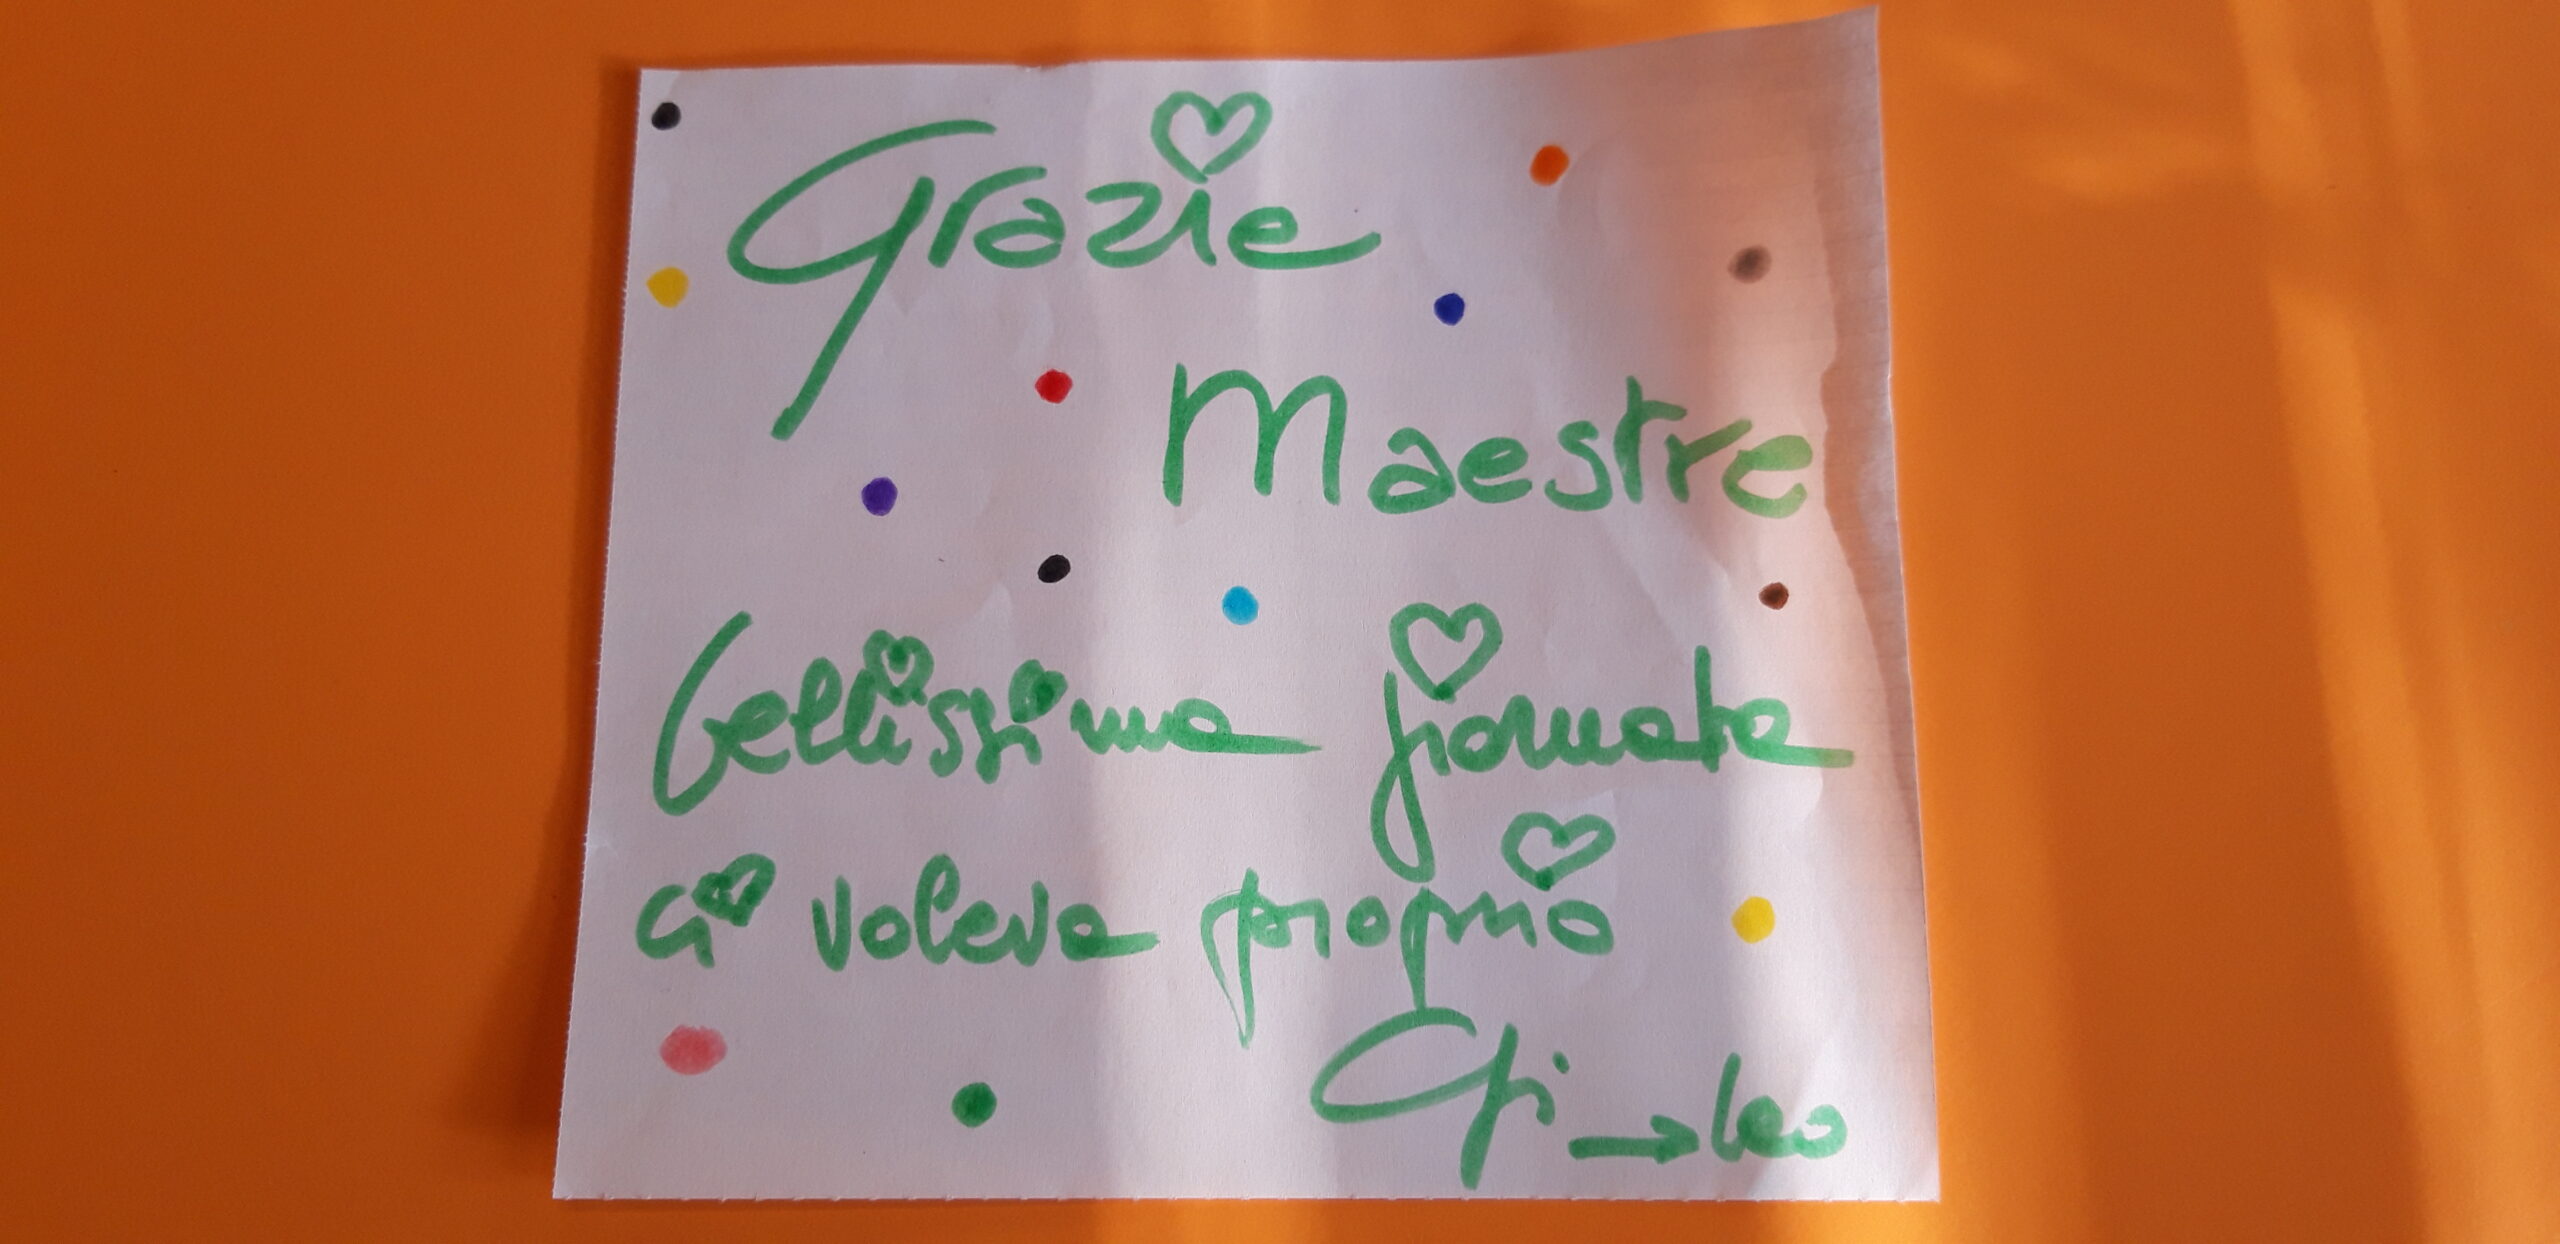 Grazie
Maestre
bellissima giornata
ci voleva proprio
Gi → Leo